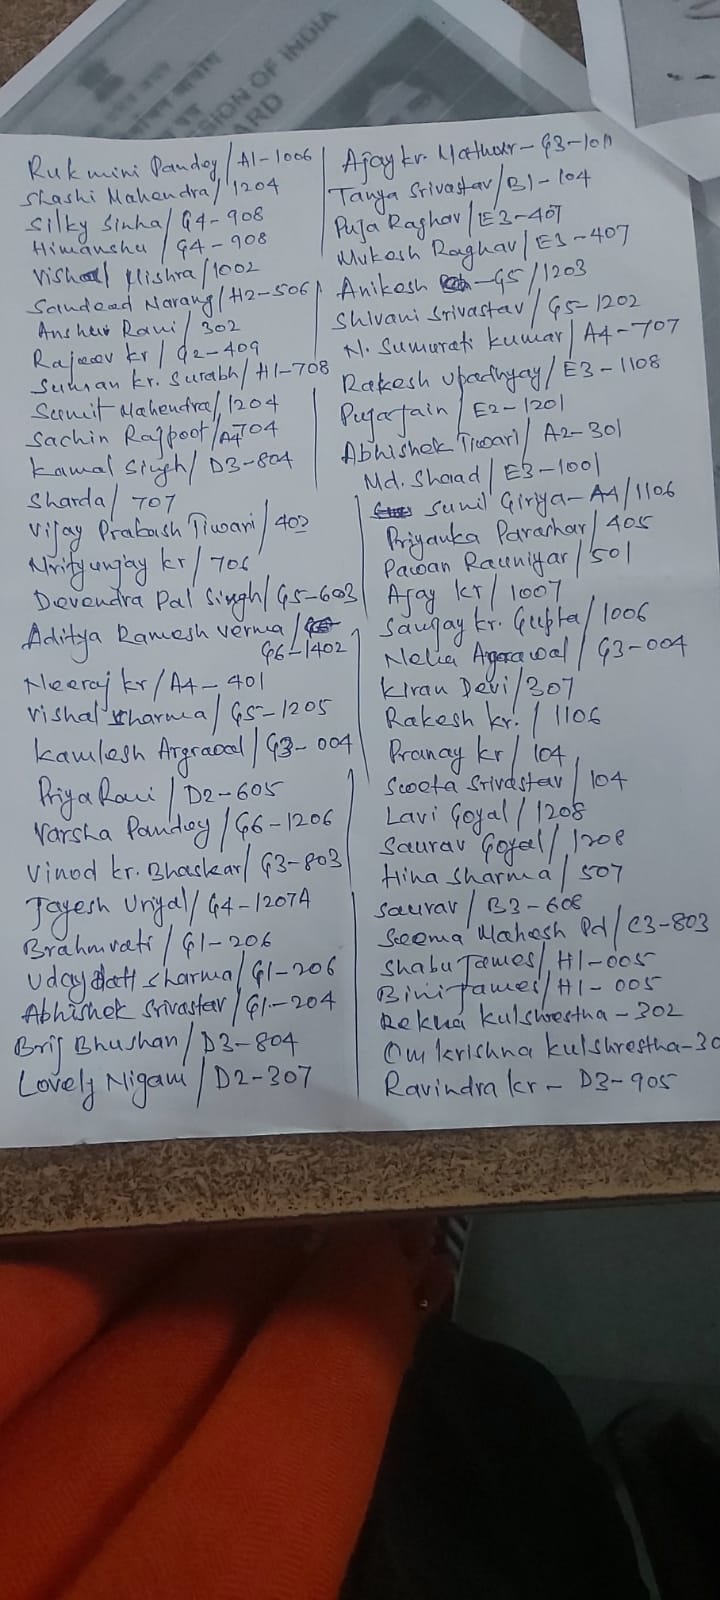 SION OF INDIA
ARD
Rukmini Pandey/A1-1006
Shashi Mahendra/1204
Silky Sinha/G4-908
Himanshu/G4-908
Vishal Mishra/1002
Narang/H2-506
Rani/302
Rajeev kr/G2-409
Suman kr. Surabh/H1-708
Sumit Mahendra/1204
Sachin Rajpoot/A4 704
Kamal Singh/D3-804
Sharda/707
Vijay Prakash Tiwari/402
Mrityunjay kr/706
Devendra Pal Singh/G5-603
Aditya Ramesh Verma/
G6-1402
Neeraj kr/A4-401
Vishal Sharma/G5-1205
Kamlesh Argrawal/G3-004
Priya Rani/D2-605
Varsha Pandey/G6-1206
Vinod kr. Bhaskar/G3-803
Jayesh Uniyal/G4-1207A
Brahmvati/G1-206
Uday Datt Sharma/G1-206
Abhishek Srivastav/G1-204
Brij Bhushan/D3-804
Lovely Nigam/D2-307
Ajay kr. Mathur-G3-1011
Tanya Srivastav/B1-104
Puja Raghav/E3-407
Mukesh Raghav/E3-407
Anikesh -G5/1203
Shivani Srivastav/G5-1202
N. kumar/A4-707
Rakesh Upadhyay/E3-1108
Puja Jain/E2-1201
Abhishek Tiwari/A2-301
Md. Shaad/E3-1001
Sunil Giriya-A4/1106
Priyanka Parashar/405
Pawan Rauniyar/501
Ajay kr/1007
Sanjay kr. Gupta/1006
Neha Agarawal/G3-004
Kiran Devi/307
Rakesh kr./1106
Pranay kr/104
Sweta Srivastav/104
Lavi Goyal/1208
Saurav Goyal/1208
Hina Sharma/507
Saurav/B3-608
Seema Mahesh Pd/C3-803
Shabu James/H1-005
Bini James/H1-005
Rekha Kulshrestha-302
Om krishna kulshrestha-30
Ravindra kr-D3-905